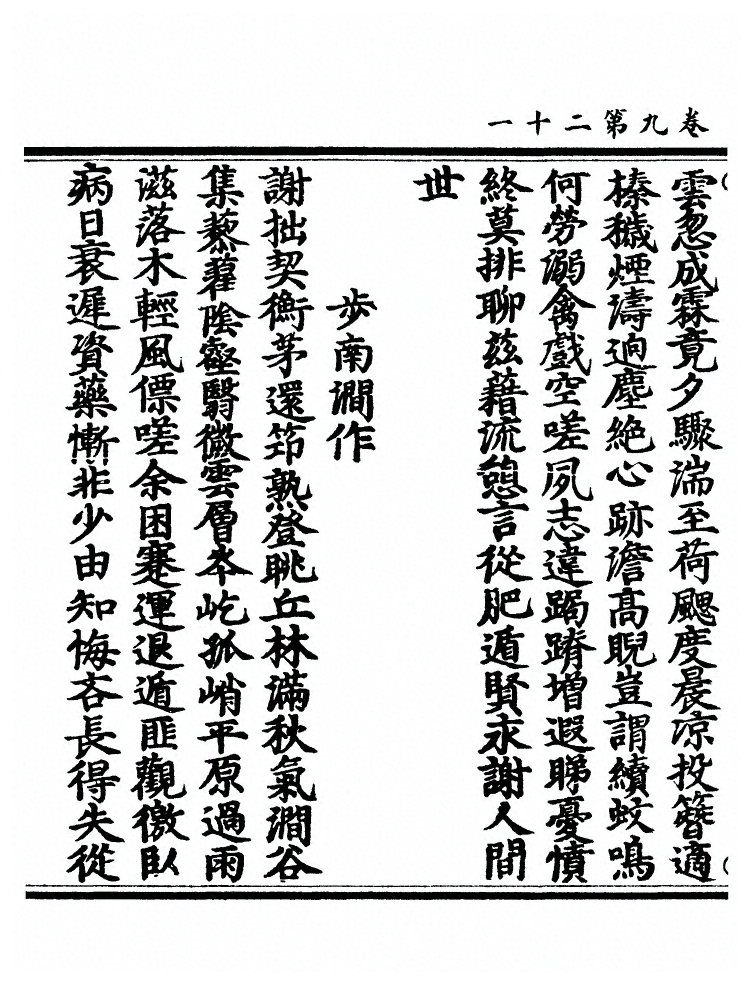 卷九第二十一
雲忽成霖竟夕驟湍至荷颸度晨凉投簪適
榛穢煙濤迥塵絶心跡澹髙睨豈謂續蚊鳴
何勞溺禽戲空嗟夙志違跼蹐增遐睇憂憤
終莫排聊兹藉流憩言從肥遁賢永謝人間
世
步南澗作
謝拙契衡茅還笻熟登眺丘林滿秋氣澗谷
集藜藿陰壑翳微雲層岑屹孤峭平原過雨
滋落木輕風僄嗟余困蹇運退遁匪觀徼臥
病日衰遲資藥慚非少由知悔吝長得失從